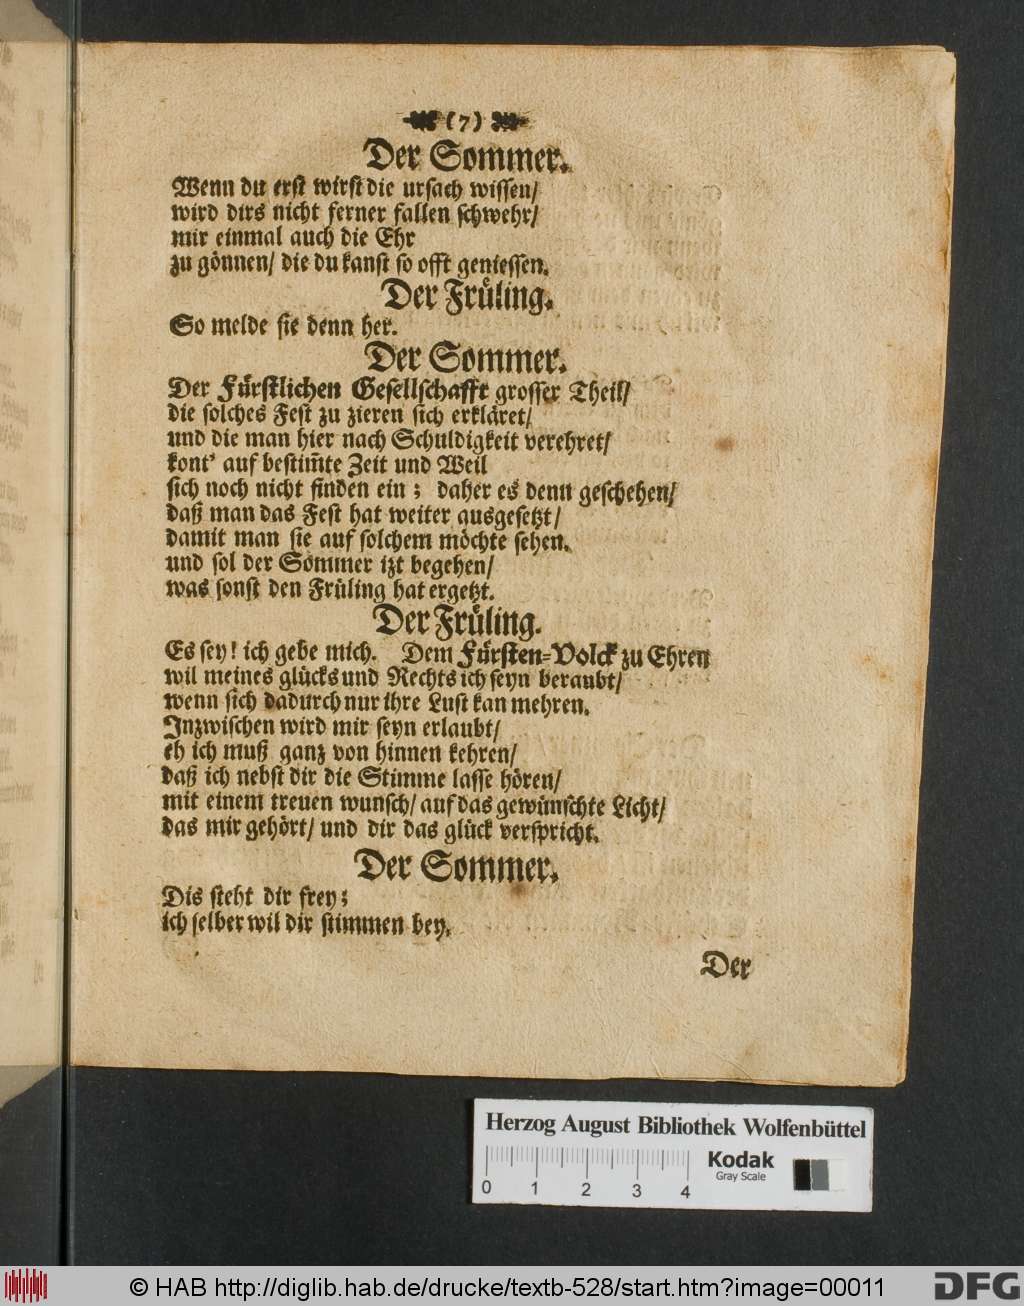 (7)
Der Sommer.
Wenn du erst wirst die ursach wissen/
wird dirs nicht ferner fallen schwehr/
mir einmal auch die Ehr
zu gönnen/ die du kanst so offt geniessen.
Der Früling.
So melde sie denn her.
Der Sommer.
Der Fürstlichen Gesellschafft grosser Theil/
die solches Fest zu zieren sich erkläret/
und die man hier nach Schuldigkeit verehret/
kont' auf bestim̄te Zeit und Weil
sich noch nicht finden ein; daher es denn geschehen/
daß man das Fest hat weiter ausgesetzt/
damit man sie auf solchem möchte sehen.
und sol der Sommer izt begehen/
was sonst den Früling hat ergetzt.
Der Früling.
Es sey! ich gebe mich. Dem Fürsten-Volck zu Ehren
wil meines glücks und Rechts ich seyn beraubt/
wenn sich dadurch nur ihre Lust kan mehren.
Inzwischen wird mir seyn erlaubt/
eh ich muß ganz von hinnen kehren/
daß ich nebst dir die Stimme lasse hören/
mit einem treuen wunsch/ auf das gewünschte Licht/
das mir gehört/ und dir das glück verspricht.
Der Sommer.
Dis steht dir frey;
ich selber wil dir stimmen bey.
Der
Herzog August Bibliothek Wolfenbüttel
Kodak
Gray Scale
0 1 2 3 4
© HAB http://diglib.hab.de/drucke/textb-528/start.htm?image=00011
DFG